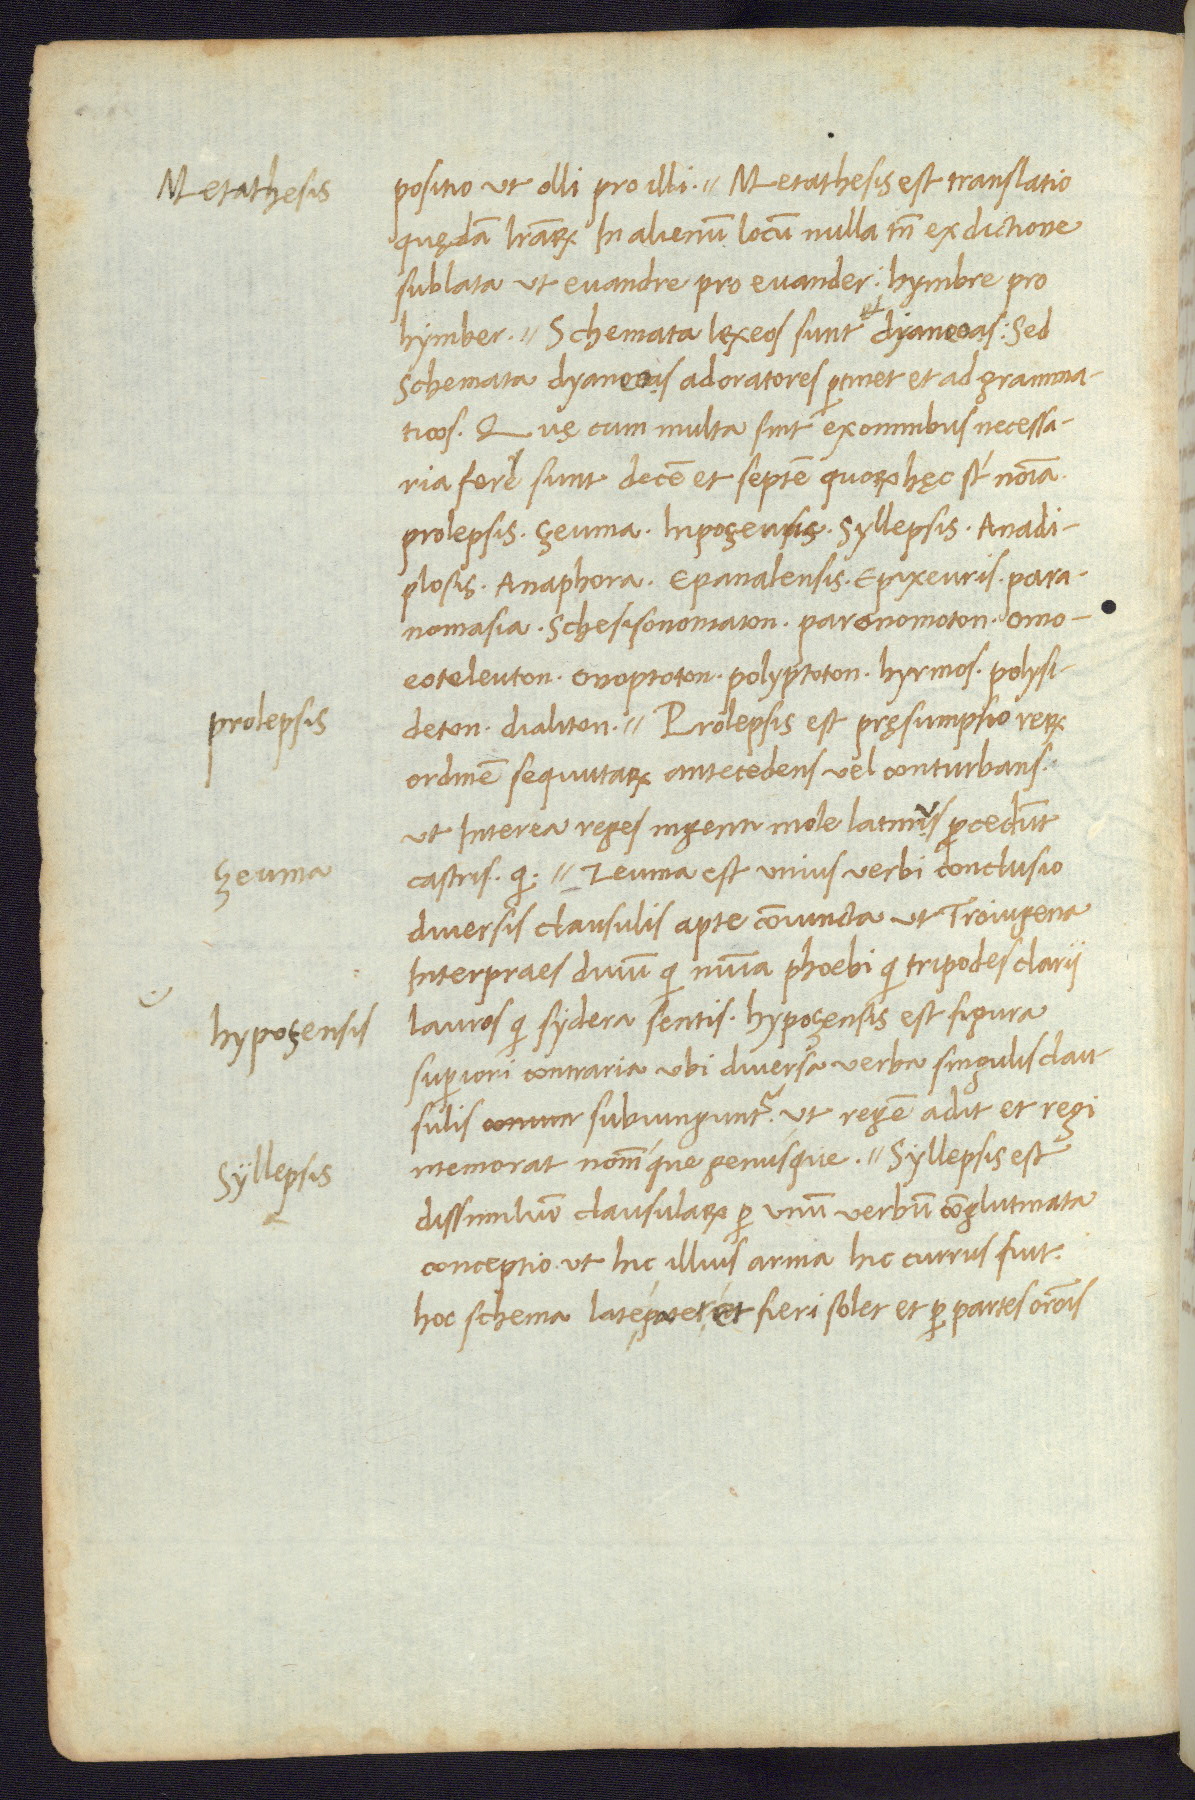 Metathesis
positio ut olli pro illi. // Metathesis est translatio
quędā lr̄arꝝ In alienū locū nulla tn̄ ex dictione
sublata ut evandre pro evander: hymbre pro
hymber. // Schemata lexeos sunt et dyaneas: Sed
Schemata dyaneas ad oratores ꝑtinet et ad gramma-
ticos. Quę cum multa sint ex omnibus necessa-
ria ferē sunt decē et septē quorꝝ hęc st́ noīa.
prolepsis. zeuma. hipozeusis. Syllepsis. Anadi-
plosis. Anaphora. Epanalensis. Epixeuris. para-
nomasia. Schesisonomaton. paronomoton. omo-
eoteleuton. omoptoton. polyptoton. hyrmos. polysi-
prolepsis
deton. dialiton. // Prolepsis est pręsumptio rerꝝ
ordinē sequutarꝝ antecedens vel conturbans.
ut Interea reges ingenti mole latinus ꝓcedūt
zeuma
castris. // Zeuma est unius verbi conclusio
diversis clausulis apte cōiuncta ut Troiugena
Interpraes divū q̄ numīa phoebi q̄ tripodes clarij
hypozensis
lauros q̄ sydera sentis. hypozensis est figura
suꝑiori contraria ubi diversa verba singulis clau-
sulis subiunguntr. ut regē adit et regi
memorat nom̄que genusque. // Syllepsis est
Syllepsis
dissimiliuō clausularꝝ ꝑ unū verbū cōglutinata
conceptio. ut hic illius arma hic currus fuit.
hoc schema late patet et fieri solet et ꝑ partes orōis